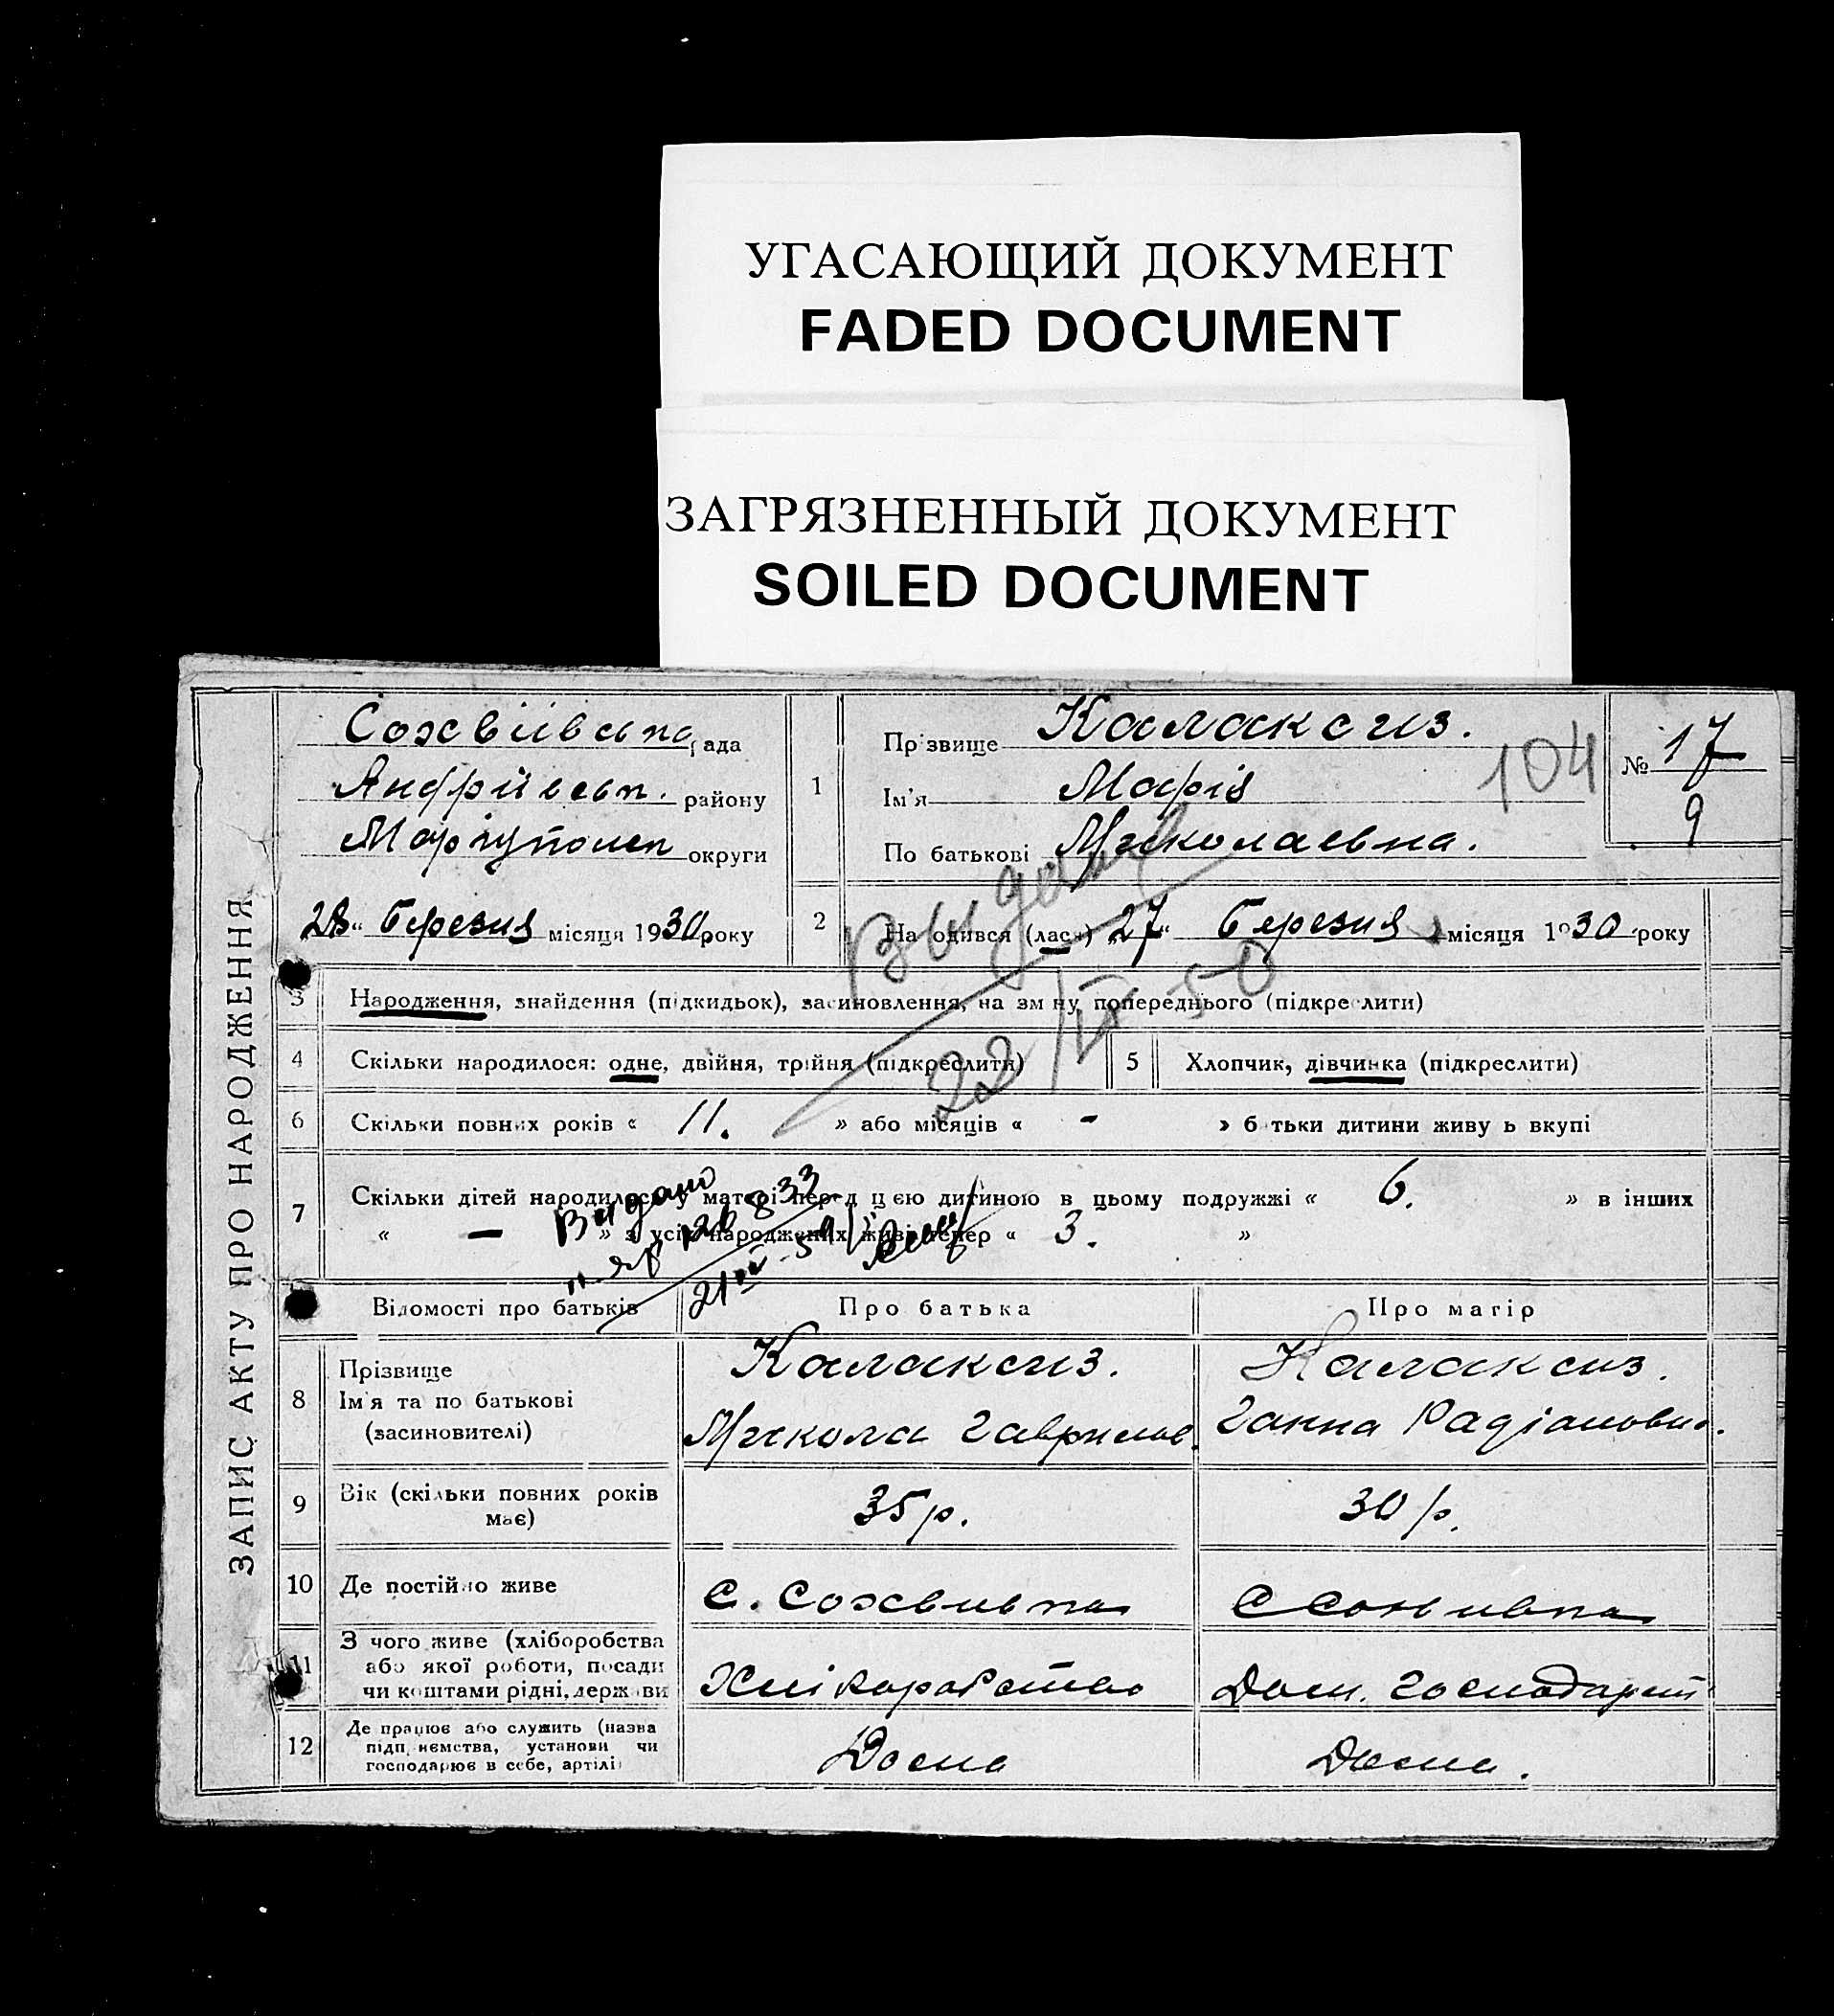 УГАСАЮЩИЙ ДОКУМЕНТ
FADED DOCUMENT
ЗАГРЯЗНЕННЫЙ ДОКУМЕНТ
SOILED DOCUMENT
ЗАПИС АКТУ ПРО НАРОДЖЕННЯ
рада
Андріївськ. району
Маріупольск округи
28 " березня місяця 1930 року
1
Прізвище
Ім'я Марія
По батькові Миколаевна.
104
№ 17
9
2
На одився (лася) 27 " березня місяця 1930 року
Видано
22/IV 50
3 Народження, знайдення (підкидьок), засиновлення, на зм ну попереднього (підкреслити)
4 Скільки народилося: одне, двійня, трійня (підкреслити)
5 Хлопчик, дівчинка (підкреслити)
6 Скільки повних років « 11. » або місяців « - » б тьки дитини живу ь вкупі
7 Скільки дітей народилось у матері перед цією дитиною в цьому подружжі « 6. » в інших
« — » з усіх народжених живі тепер « 3. »
Видано
Відомості про батьків
Про батька
Про матір
8
Прізвище
Ім'я та по батькові
(засиновителі)
Микола Гаврилов.
Ганна Радіановна.
9
Вік (скільки повних років
має)
35 р.
30 р.
10
Де постійно живе
с.
с
11
З чого живе (хліборобства
або якої роботи, посади
чи коштами рідні, держ ви
Хліборобство
Дом. господарст
12
Де працює або служить (назва
підп иємства, установи чи
господарює в себе, артілі)
Дома
Дома.